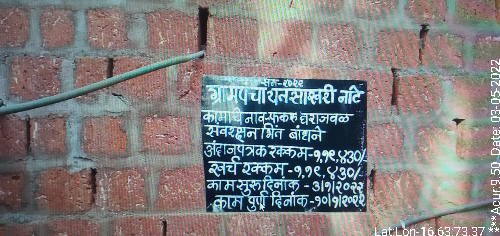 सन-२०२२
ग्रामपंचायत साखरी नाटे
कामाचे नाव-फकरु घराजवळ
संवरक्षण भिंत बांधने
अंदाजपत्रक रक्कम-१,१९,४३०/-
खर्च रक्कम-१,१९,४३०/-
काम सुरु दिनांक-३/१/२०२२
काम पुर्ण दिनांक-१०/१/२०२२
Lat.Lon-16.63:73.37
***Acur:9.50 Date: 03-05-2022